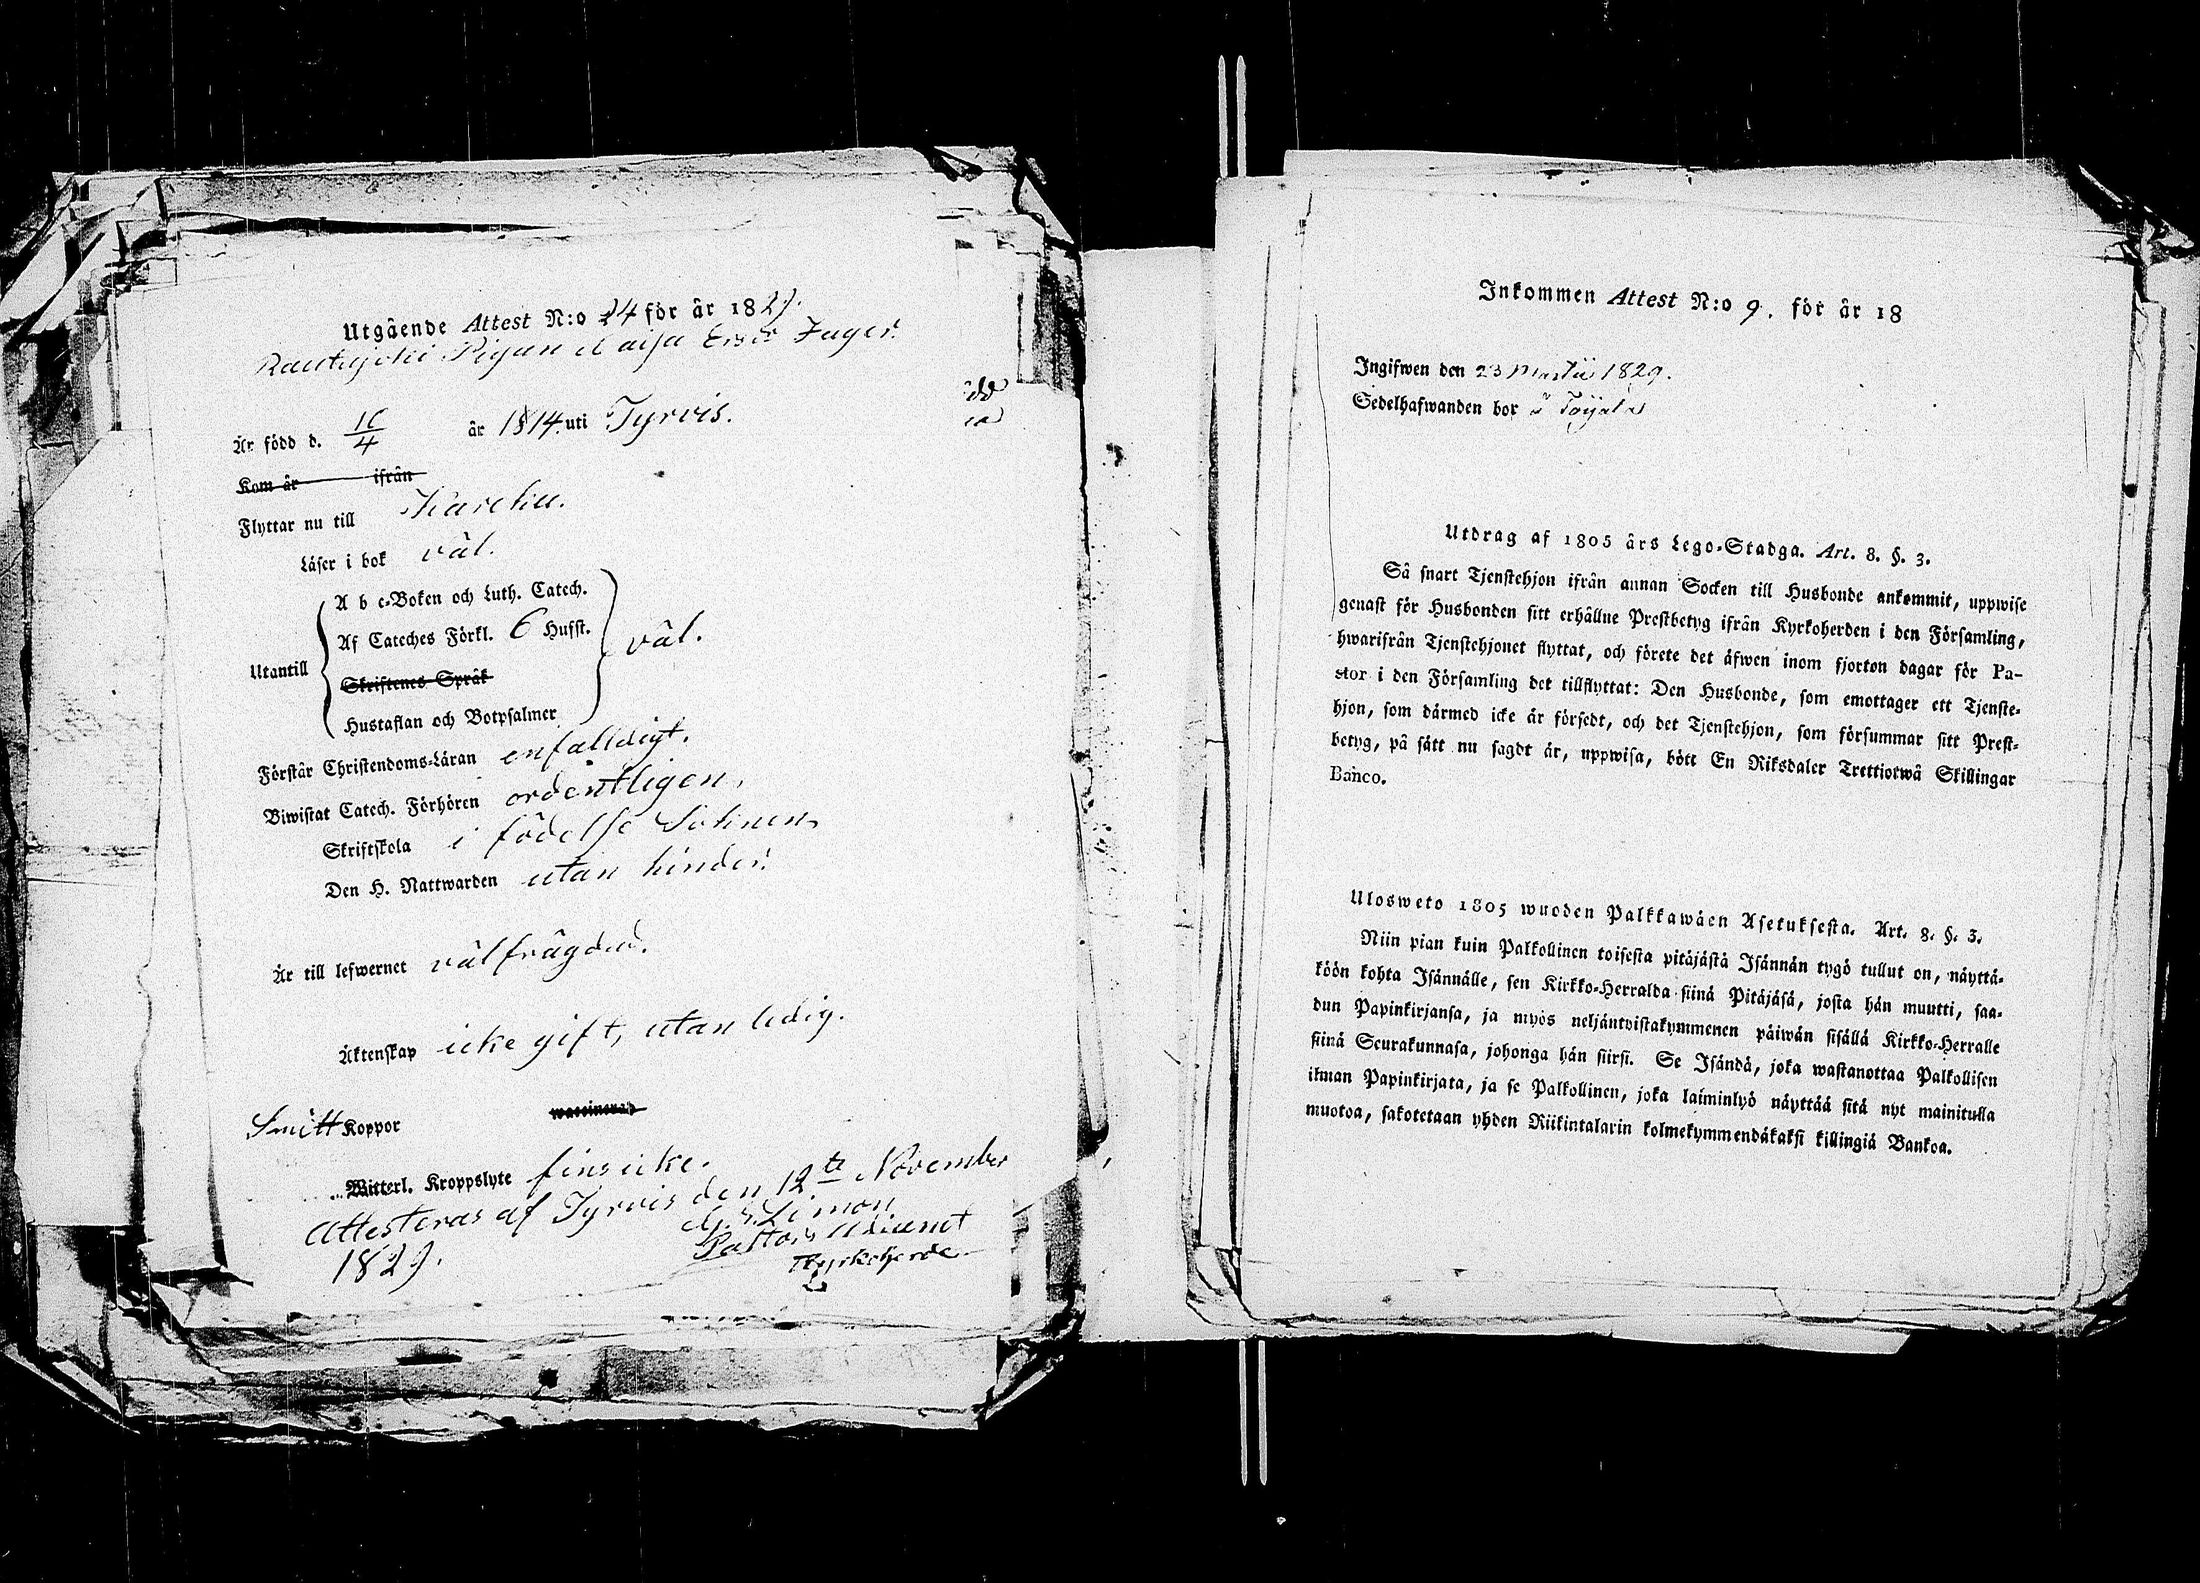 Utgående Attest N:o 24 för år 1829.
Rautajoki Pigan Maija Ersdr Jäger.
Är född d. 16/4 år 1814. uti Tyrvis.
Kom år ifrån
Flyttar nu till Karcku.
Läser i bok väl.
Utantill
A b c-Boken och Luth. Catech.
Af Cateches Förkl. 6 Hufst.
väl.
Skriftenes Språk
Hustaflan och Botpsalmer
Förstår Christendoms-Läran enfalldigt.
Biwistat Catech. Förhören ordentligen,
Skriftskola i födelse Soknen,
Den H. Nattwarden utan hinder.
Är till lefwernet välfrägdad.
Äktenskap icke gift, utan ledig.
Smitt Koppor waccinerad
Witterl. Kroppslyte fins icke.
Attesteras af Tyrvis den 12te November
1829.
Simon
Pastors Adjunct
Kyrkoherde
Inkommen Attest N:o 9. för år 18
Ingifwen den 23 Martii 1829.
Sedelhafwanden bor
Utdrag af 1805 års Lego-Stadga. Art. 8. §. 3.
Så snart Tjenstehjon ifrån annan Socken till Husbonde ankommit, uppwise
genast för Husbonden sitt erhållne Prestbetyg ifrån Kyrkoherden i den Församling,
hwarifrån Tjenstehjonet flyttat, och förete det äfwen inom fjorton dagar för Pa-
stor i den Församling det tillflyttat: Den Husbonde, som emottager ett Tjenste-
hjon, som därmed icke är försedt, och det Tjenstehjon, som försummar sitt Prest-
betyg, på sätt nu sagdt är, uppwisa, bött En Riksdaler Trettiotwå Skillingar
Banco.
Ulosweto 1805 wuoden Palkkawäen Asetuksesta. Art. 8. §. 3.
Niin pian kuin Palkollinen toisesta pitäjästä Isännän tygö tullut on, näyttä-
köön kohta Isännälle, sen Kirkko-Herralda siinä Pitäjäsä, josta hän muutti, saa-
dun Papinkirjansa, ja myös neljäntoistakymmenen päiwän sisällä Kirkko-Herralle
siinä Seurakunnasa, johonga hän siirsi. Se Isändä, joka wastanottaa Palkollisen
ilman Papinkirjata, ja se Palkollinen, joka laiminlyö näyttää sitä nyt mainitulla
muotoa, sakotetaan yhden Riikintalarin kolmekymmendäkaksi killingiä Bankoa.